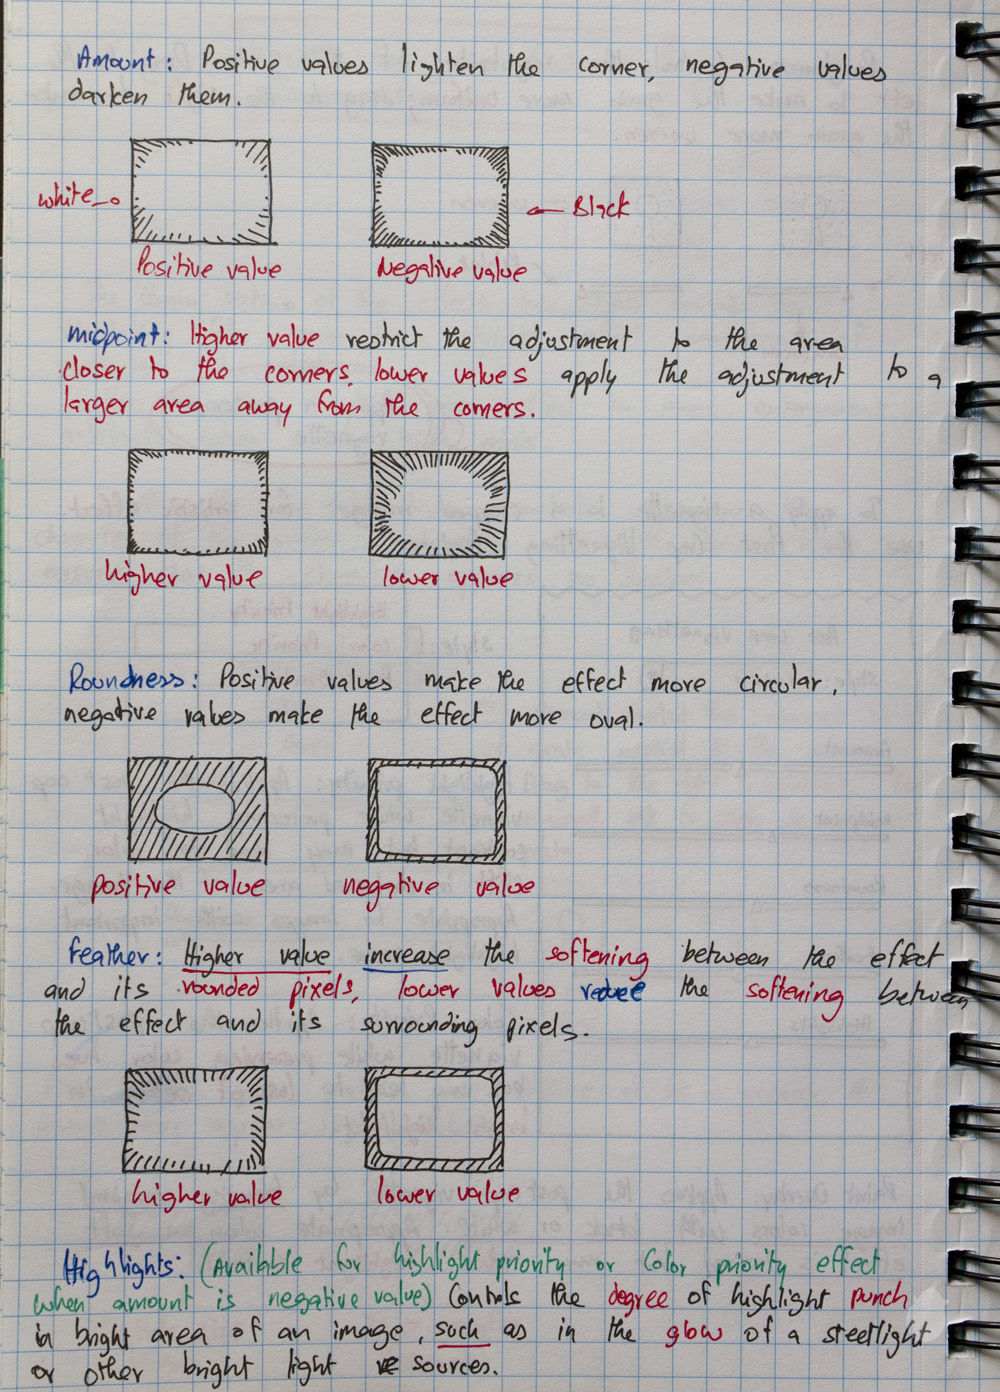 Amount: Positive values lighten the corner, negative values
darken them.
white
Black
Positive value
Negative value
midpoint: Higher value restrict the adjustment to the area
closer to the corners, lower values apply the adjustment to a
larger area away from the corners.
higher value
lower value
Roundness: Positive values make the effect more circular,
negative values make the effect more oval.
positive value
negative value
Feather: Higher value increase the softening between the effect
and its rounded pixels, lower values reduce the softening between
the effect and its surrounding pixels.
higher value
lower value
Highlights: (Available for highlight priority or Color priority effect
when amount is negative value) Controls the degree of highlight punch
in bright area of an image, such as in the glow of a steetlight
or other bright light sources.